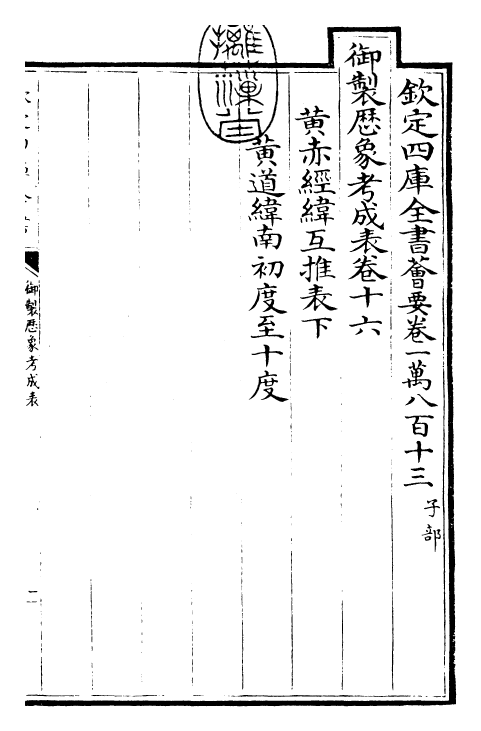 欽定四庫全書薈要卷一萬八百十三 子部
御製歷象考成表卷十六
黃赤經緯互推表下
黃道緯南初度至十度
御製歷象考成表
二